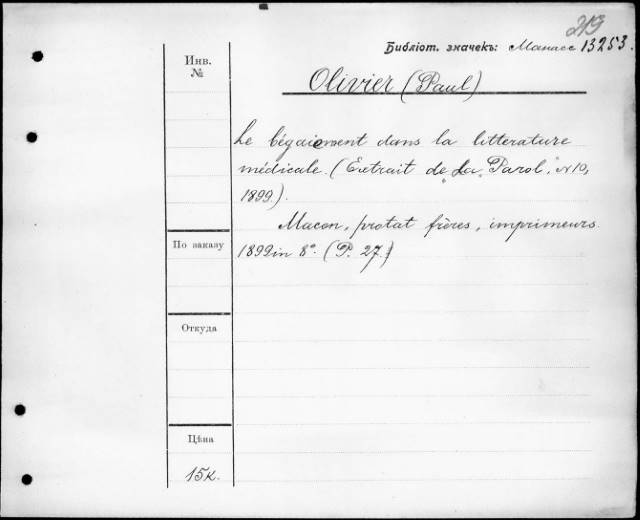 213
Библіот. значекъ: Манасс 13253.
Инв.
№
Olivier (Paul)
Le bégaiement dans la litterature
médicale. (Extrait de "La Parol", N 10,
1899).
Macon, protat frères, imprimeurs.
1899 in 8°. (P. 27.)
По заказу
Откуда
Цѣна
15к.